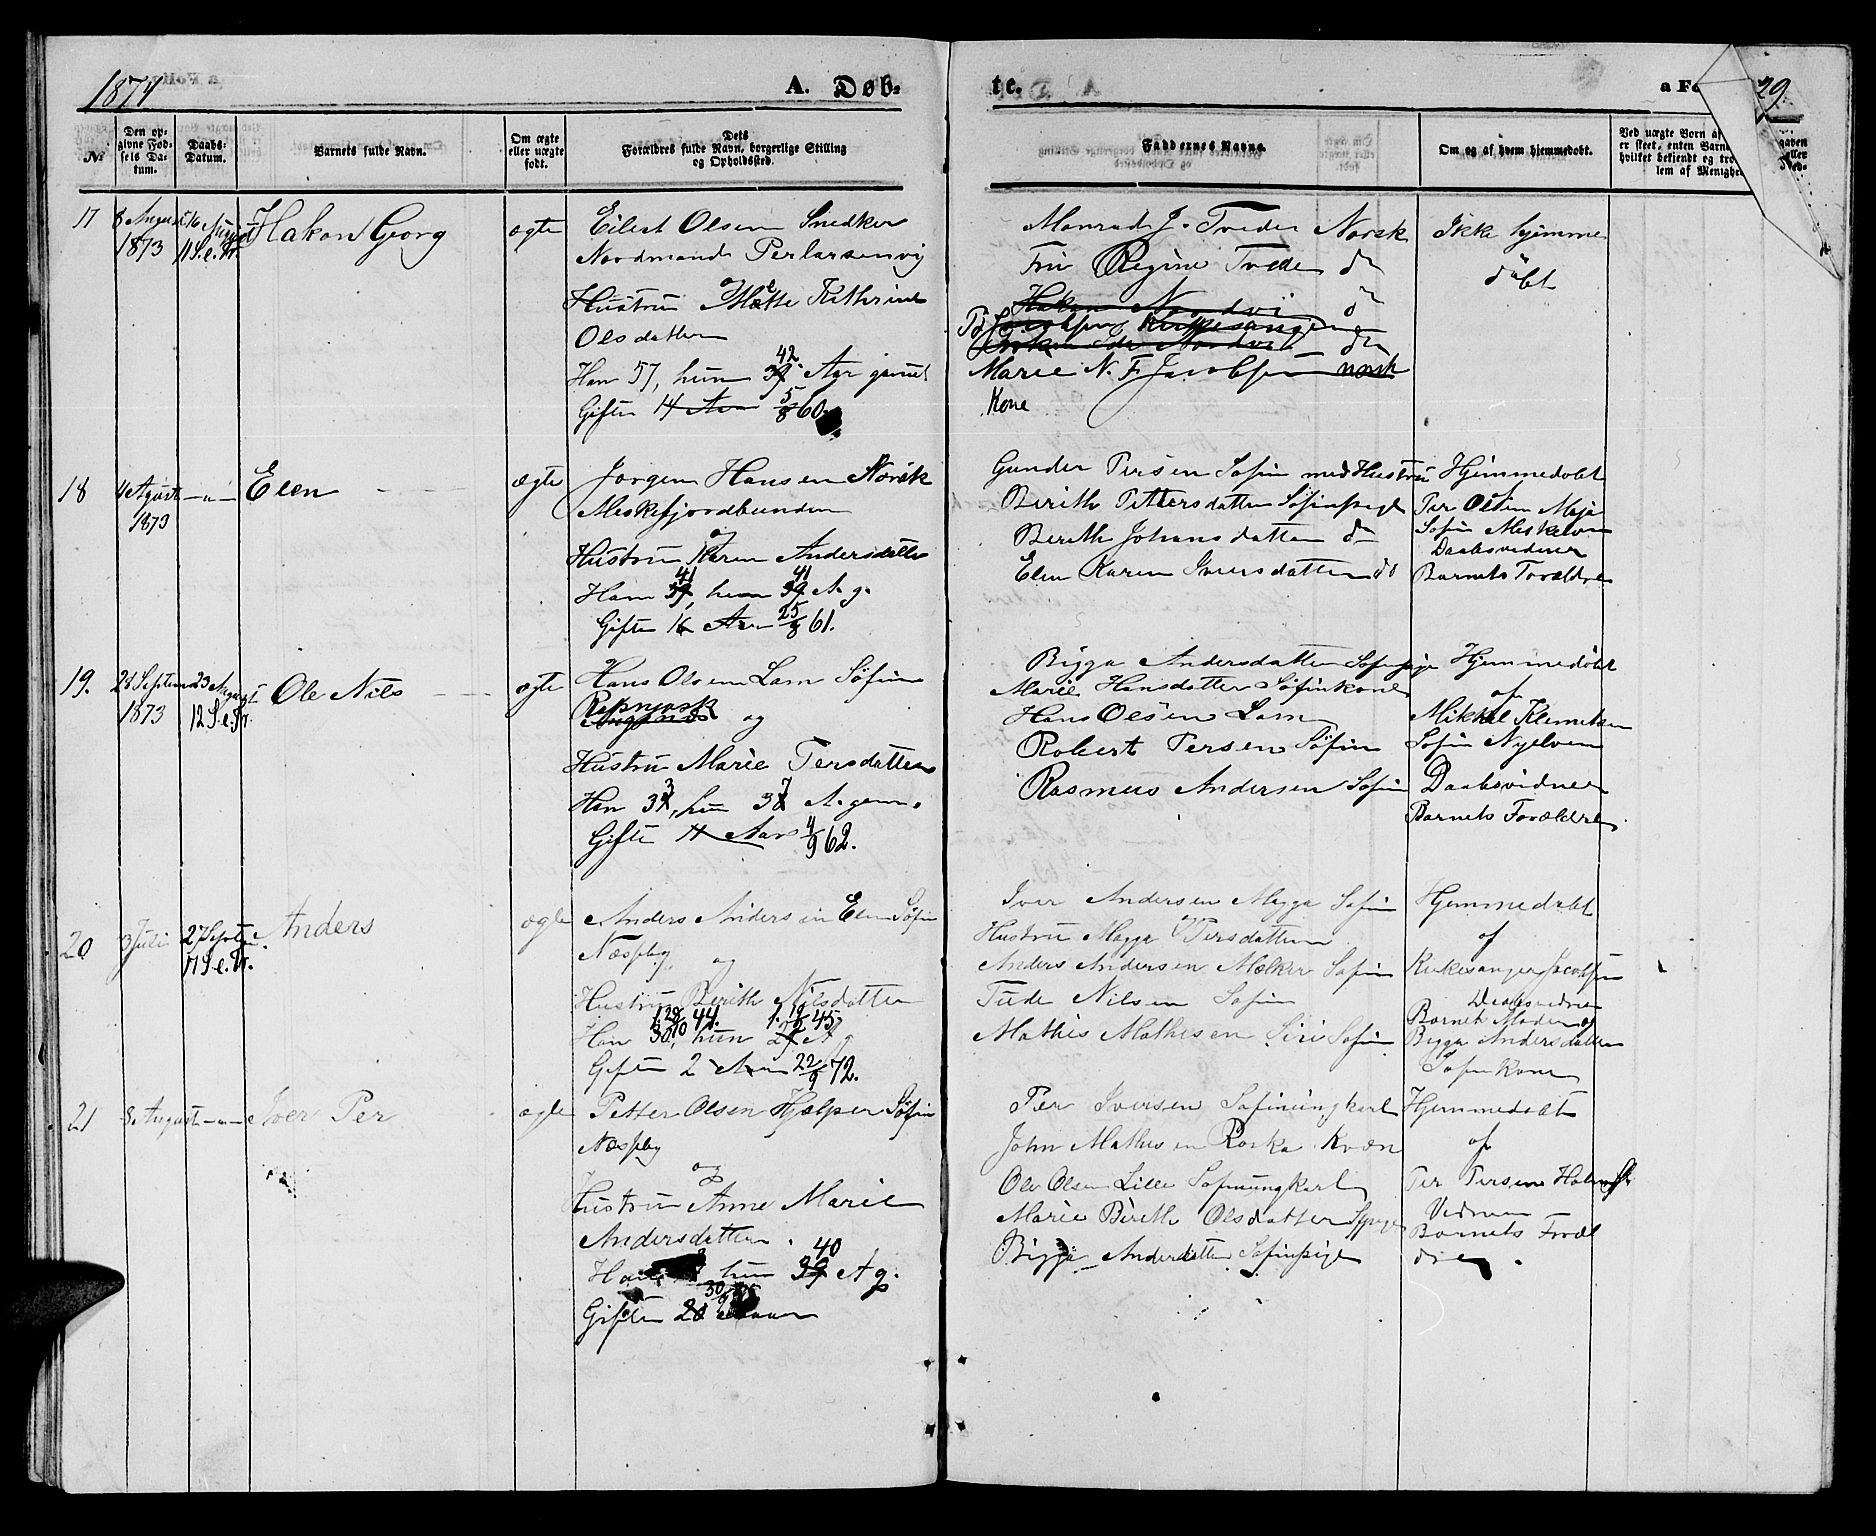 1874
A. Døb-
te.
a Fo
29.
№
Den op-
givne Fød-
sels Da-
tum.
Daabs-
Datum.
Barnets fulde Navn.
Om ægte
eller uægte
født.
Dets
Forældres fulde Navn, borgerlige Stilling
og Opholdssted.
Faddernes Navne.
Om og af hvem hjemmedøbt.
Ved uægte Børn af
er skeet, enten Barne
hvilket bekjendt og tro
lem af Menighe
17
8 August
1873
16 August
11 S. e. Tr.
Hakon Georg
ægte
Eilert Olsen Snedker
Nordmand Perlarsenvig
og
Hustru Mætte Kathrine
Olsdatter
Han 57, hun 39 42 Aar gamel
Gifte 14 Aar 5/8 60
Monrad J. Tvede Norsk
Fru Regine Tvede do
Hakon Nordvi do
P. Jacobsen Kirkesanger
Marie N. F. Jacobsen norsk
Kone
Ikke hjemme
døbt
18
4 August
1873
— " —
Elen
ægte
Jørgen Hansen Norsk
Meskefjordbunden
og
Hustru Karen Andersdatter
Han 39 41, hun 39 41 A. g.
Gifte 16 Aar 25/8 61.
Gunder Persen Søfin med Hustru
Berith Pettersdatter Søfinpige
Berith Johansdatter do
Elen Karen Iversdatter do
Hjemmedøbt
Per Olsen Maja
Søfin Meskelven
Daabsvidner
Barnets Forældre
19.
28 Septem
1873
23 August
12 S. e. Tr.
Ole Nils
ægte
Hans Olsen Lam Søfin
Rapnjarsk
og
Hustru Marie Persdatter
Han 3 3, hun 3 7 A. gam.
Gifte 11 Aar 4/9 62.
Bigga Andersdatter Søfinpige
Marie Hansdatter Søfinkone
Hans Olsen Lam
Robert Persen Søfin
Rasmus Andersen Søfin
Hjemmedøbt
af
Mikkel Klemetsen
Søfin Nyelven
Daabsvidner
Barnets Forældre
20
3 Juli
27 Septem
17 S. e. Tr.
Anders
ægte
Anders Andersen Elen Søfin
Næsseby
og
Hustru Berith Nilsdatter
Han 30, hun A g
Gifte 2 Aar 22/9 72.
Iver Andersen Magga Søfin
Hustru Magga Persdatter
Anders Andersen Mælker Søfin
Tude Nilsen Søfin
Mathis Mathesen Siri Søfin
Hjemmedøbt
af
Kirkesanger Jacobsen
Daabsvidner
Barnets Moder og
Bigga Andersdatter
Søfinkone
21
8 August
— " —
Iver Per
ægte
Petter Olsen Hjælper Søfin
Næsseby
og
Hustru Anne Marie
Andersdatter
Han hun 39 40 A g.
Gifte 20 Aar
Per Iversen Søfinungkarl
John Mathisen Roska Kvæn
Ole Olsen Lille Søfinungkarl
Marie Berith Olsdatter Sfpige
Bigga Andersdatter Søfinpige
Hjemmedøbt
af
Per Persen
Vidner
Barnets Foræl
dre.